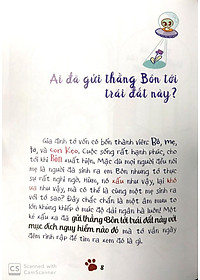 Ai đã gửi thằng Bôn tới
trái đất này?
Gia đình tớ vốn có bốn thành viên: Bố, mẹ,
tớ, và con Kẹo. Cuộc sống rất hạnh phúc, cho
tới khi Bôn xuất hiện. Mặc dù mọi người đều nói
mẹ là người đã sinh ra em Bôn nhưng tớ thực
sự rất nghi ngờ. Hừm, nó xấu như vậy, lại khó
ưa như vậy, mà có thể là cùng một mẹ sinh ra
với tớ sao? Đây chắc chắn là một âm mưu to
lớn khủng khiếp ở mức độ dải ngân hà luôn! Một
kẻ xấu xa đã gửi thằng Bôn tới trái đất này với
mục đích nguy hiểm nào đó mà tớ vẫn ngày
đêm rình rập để tìm ra xem đó là gì.
8
CS
Scanned with
CamScanner